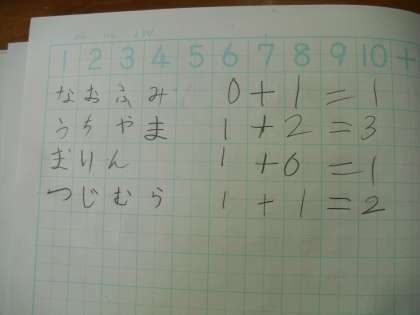 1 2 3 4 5 6 7 8 9 10 +
なおふみ 0+1=1
うちやま 1+2=3
まりん 1+0=1
つじむら 1+1=2